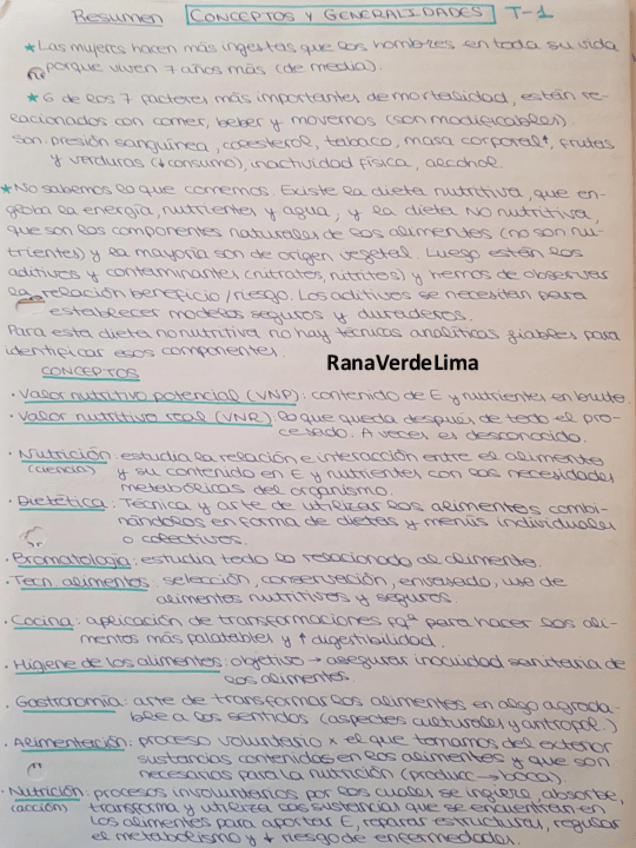 Resumen CONCEPTOS Y GENERALIDADES T-1
* Las mujeres hacen más ingestas que los hombres en toda su vida
porque viven 7 años más (de media).
* 6 de los 7 factores más importantes de mortalidad, están re-
lacionados con comer, beber y movernos (son modificables).
Son: presión sanguínea, colesterol, tabaco, masa corporal↑, frutas
y verduras (↓consumo), inactividad física, alcohol.
* No sabemos lo que comemos. Existe la dieta nutritiva, que en-
globa la energía, nutrientes y agua, y la dieta NO nutritiva,
que son los componentes naturales de los alimentos (no son nu-
trientes) y la mayoría son de origen vegetal. Luego están los
aditivos y contaminantes (nitratos, nitritos) y hemos de observar
la relación beneficio/riesgo. Los aditivos se necesitan para
establecer modelos seguros y duraderos.
Para esta dieta no nutritiva no hay técnicas analíticas fiables para
identificar esos componentes.
RanaVerdeLima
CONCEPTOS
· Valor nutritivo potencial (VNP): contenido de E y nutrientes en bruto.
· Valor nutritivo real (VNR): lo que queda después de todo el pro-
cesado. A veces es desconocido.
· Nutrición: estudia la relación e interacción entre el alimento
(ciencia) y su contenido en E y nutrientes con las necesidades
metabólicas del organismo.
· Dietética: Técnica y arte de utilizar los alimentos combi-
nándolos en forma de dietas y menús individuales
o colectivos.
· Bromatología: estudia todo lo relacionado al alimento.
· Tecn. alimentos: selección, conservación, envasado, uso de
alimentos nutritivos y seguros.
· Cocina: aplicación de transformaciones fqª para hacer los ali-
mentos más palatables y ↑ digestibilidad.
· Higiene de los alimentos: objetivo → asegurar inocuidad sanitaria de
los alimentos.
· Gastronomía: arte de transformar los alimentos en algo agrada-
ble a los sentidos (aspectos culturales y antropol.)
· Alimentación: proceso voluntario x el que tomamos del exterior
sustancias contenidas en los alimentos y que son
necesarias para la nutrición (producc → boca).
· Nutrición: procesos involuntarios por los cuales se ingiere, absorbe,
(acción) transforma y utiliza las sustancias que se encuentran en
los alimentos para aportar E, reparar estructuras, regular
el metabolismo y ↓ riesgo de enfermedades.